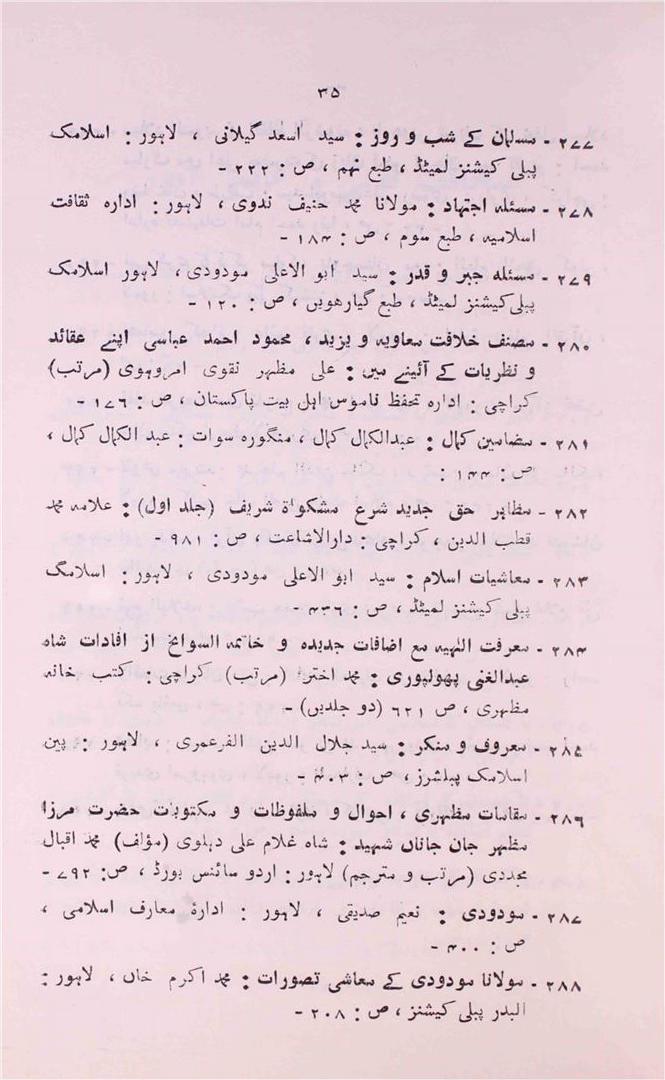 ۳۵
۲۷۷ - مسلمان کے شب و روز : سید اسعد گیلانی ، لاہور : اسلامک
پبلی کیشنز لمیٹڈ ، طبع نہم ، ص : ۲۲۲ -
۲۷۸ - مسئلہ اجتہاد : مولانا محمد حنیف ندوی ، لاہور : ادارہ ثقافت
اسلامیہ ، طبع سوم ، ص : ۱۸۴ -
۲۷۹ - مسئلہ جبر و قدر : سید ابو الاعلی مودودی ، لاہور اسلامک
پبلی کیشنز لمیٹڈ ، طبع گیارھویں ، ص : ۱۲۰ -
۲۸۰ - مصنف خلافت معاویہ و یزید ، محمود احمد عباسی اپنے عقائد
و نظریات کے آئینے میں : علی مطہر نقوی امروہوی (مرتب)
کراچی : ادارہ تحفظ ناموس اہل بیت پاکستان ، ص : ۱۷۶ -
۲۸۱ - مضامین کمال : عبدالکمال کمال ، منگورہ سوات : عبد الکمال کمال ،
ص : ۱۴۴ :
۲۸۲ - مظاہر حق جدید شرع مشکواۃ شریف (جلد اول) : علامہ محمد
قطب الدین ، کراچی : دارالاشاعت ، ص : ۹۸۱ -
۲۸۳ - معاشیات اسلام : سید ابو الاعلی مودودی ، لاہور : اسلامگ
پبلی کیشنز لمیٹڈ ، ص : ۴۳۶ -
۲۸۴ - معرفت الہٰیہ مع اضافات جدیدہ و خاتمہ السوانح از افادات شاہ
عبدالغنی پھولپوری : محمد اختر (مرتب) کراچی : کتب خانہ
مظہری ، ص ۶۲۱ (دو جلدیں) -
۲۸۵ - معروف و منکر : سید جلال الدین الفرعمری ، لاہور : پین
اسلامک پبلشرز ، ص : ۴۰۳ -
۲۸۶ - مقامات مظہری ، احوال و ملفوظات و مکتوبات حضرت مرزا
مظہر جان جاناں شہید : شاہ غلام علی دہلوی (مؤلف) محمد اقبال
مجددی (مرتب و مترجم) لاہور : اردو سائنس بورڈ ، ص : ۷۹۲ -
۲۸۷ - مودودی : نعیم صدیقی ، لاہور : ادارۂ معارف اسلامی ،
ص : ۴۰۰ -
۲۸۸ - مولانا مودودی کے معاشی تصورات : محمد اکرم خاں ، لاہور :
البدر پبلی کیشنز ، ص : ۲۰۸ -